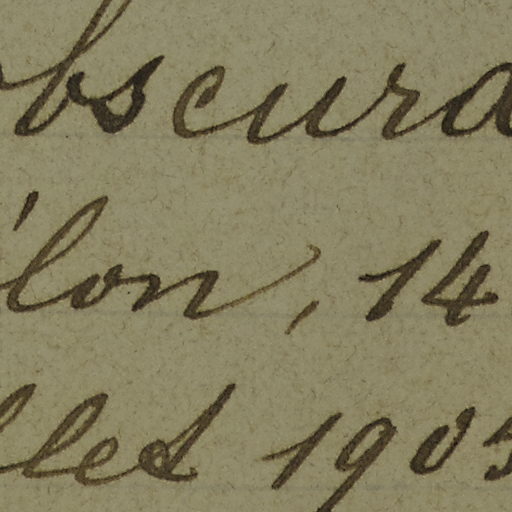 obscura
élon, 14
llet 1905